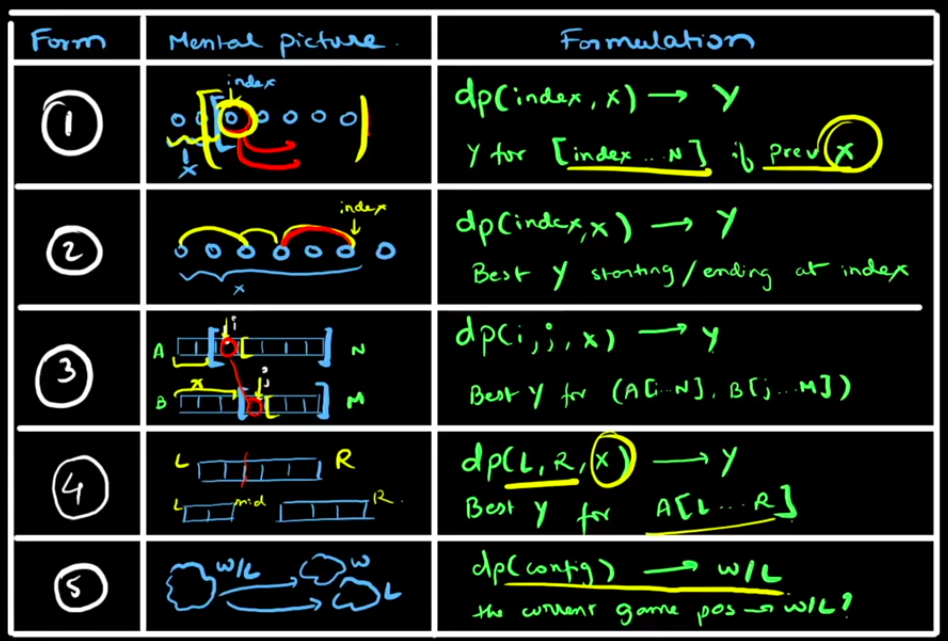 Form
Mental picture.
Formulation
1
index
x
dp(index, x) → Y
Y for [index ... N] if prev x
2
index
x
dp(index, x) → Y
Best Y starting/ending at index
3
i
A
N
x
j
B
M
dp(i, j, x) → Y
Best Y for (A[i...N], B[j...M])
4
L
R
L
mid
R.
dp(L, R, x) → Y
Best Y for A[L ... R]
5
W/L
W
L
dp(config) → W/L
the current game pos → W/L?